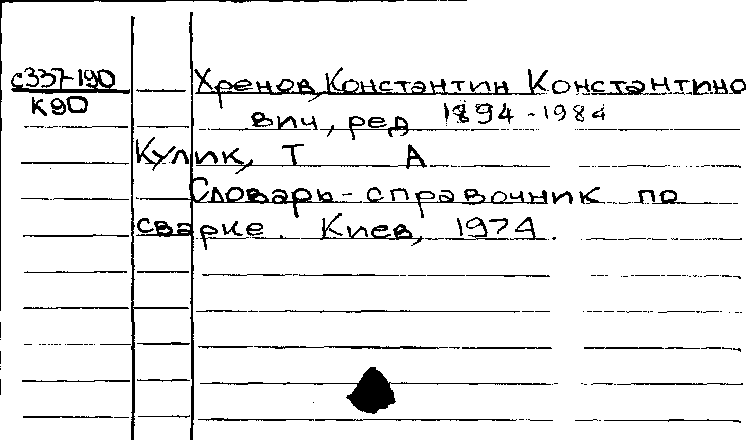 с337-190 Хренов, Константин Константино
К90 вич, ред 1894-1984
Кулик, Т А
Словарь-справочник по
сварке. Киев, 1974.